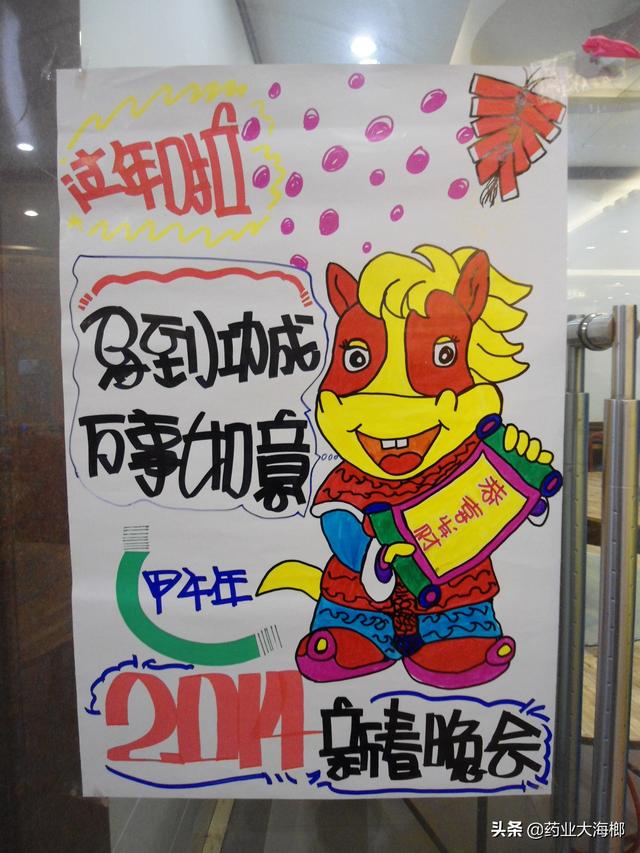 过年啦
马到功成
万事如意
恭喜发财
甲午年
2014 新春晚会
头条 @药业大海榔